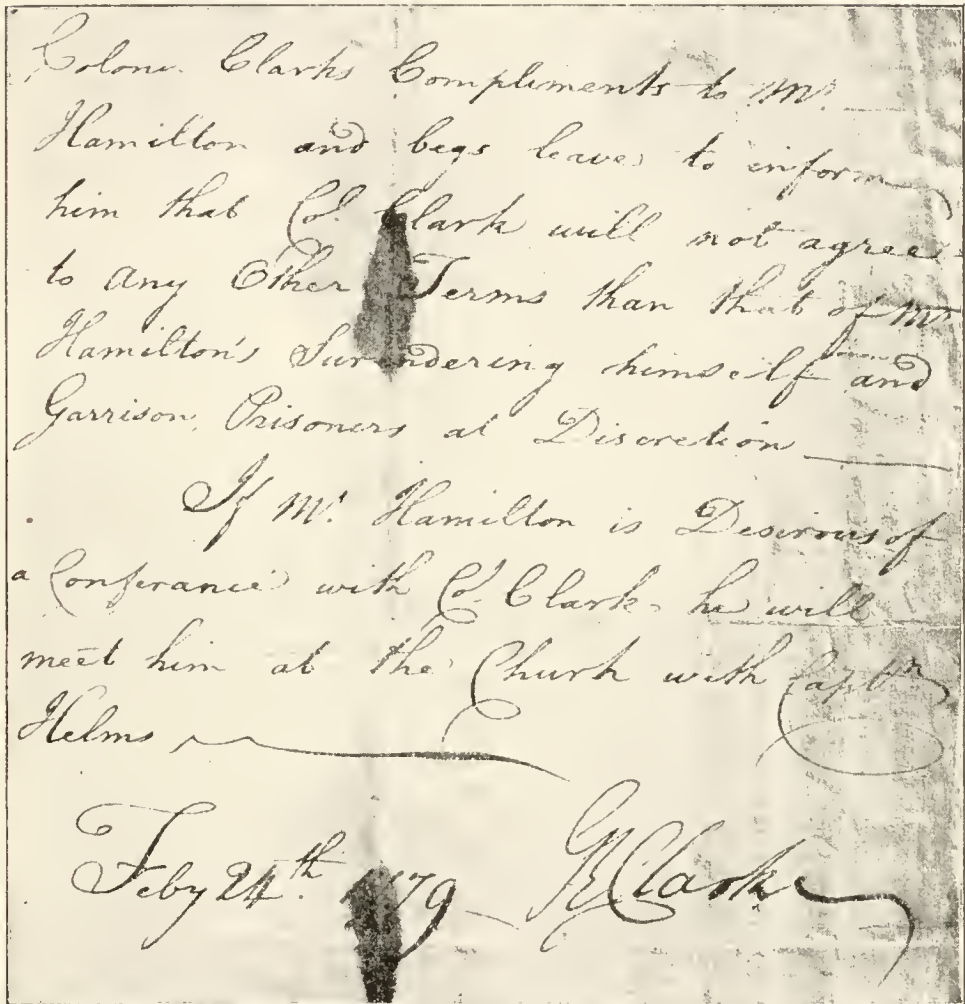 Colone. Clarks Compliments to Mr.
Hamilton and begs leave to inform
him that Col. Clark will not agree
to any Other Terms than that of Mr
Hamilton's Surendering himself and
Garrison, Prisoners at Discretion
If Mr. Hamilton is Desirous of
a Conferance with Col. Clark he will
meet him at the Church with Captn
Helms
Feby 24th. 1779 GR Clark